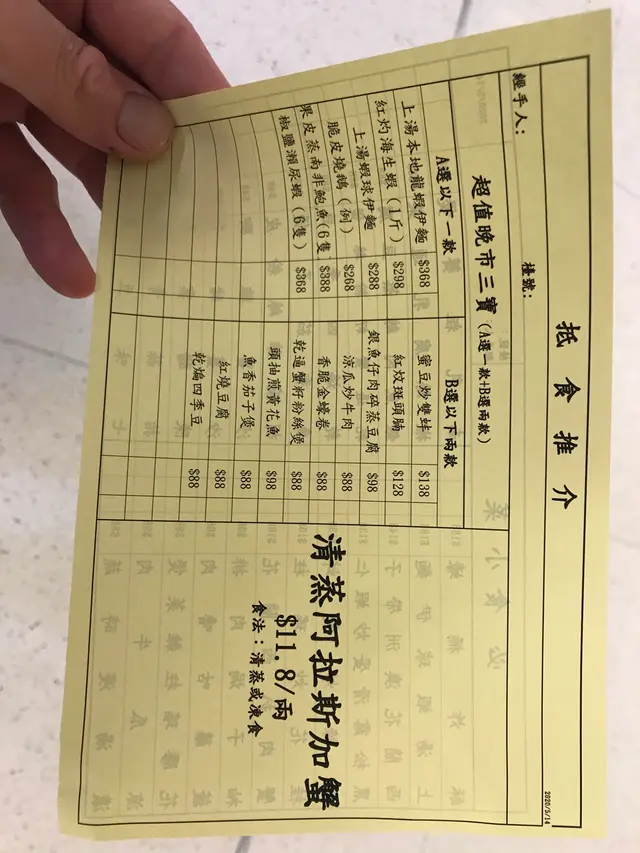 抵食推介
2020/5/14
經手人: 檯號:
超值晚市三寶 (A選一款+B選兩款)
A選以下一款 B選以下兩款
上湯本地龍蝦伊麵 $368 蜜豆炒雙蚌 $138
紅灼海生蝦(1斤) $298 紅炆斑頭腩 $128
上湯蝦球伊麵 $288 銀魚仔肉碎蒸豆腐 $98
脆皮燒鵝(例) $268 涼瓜炒牛肉 $88
果皮蒸南非鮑魚(6隻 $388 香脆金蠔卷 $88
椒鹽瀨尿蝦(6隻) $368 乾逼蟹籽粉絲煲 $88
頭抽煎黃花魚 $98
魚香茄子煲 $88
紅燒豆腐 $88
乾煸四季豆 $88
清蒸阿拉斯加蟹
$11.8/兩
食法:清蒸或凍食